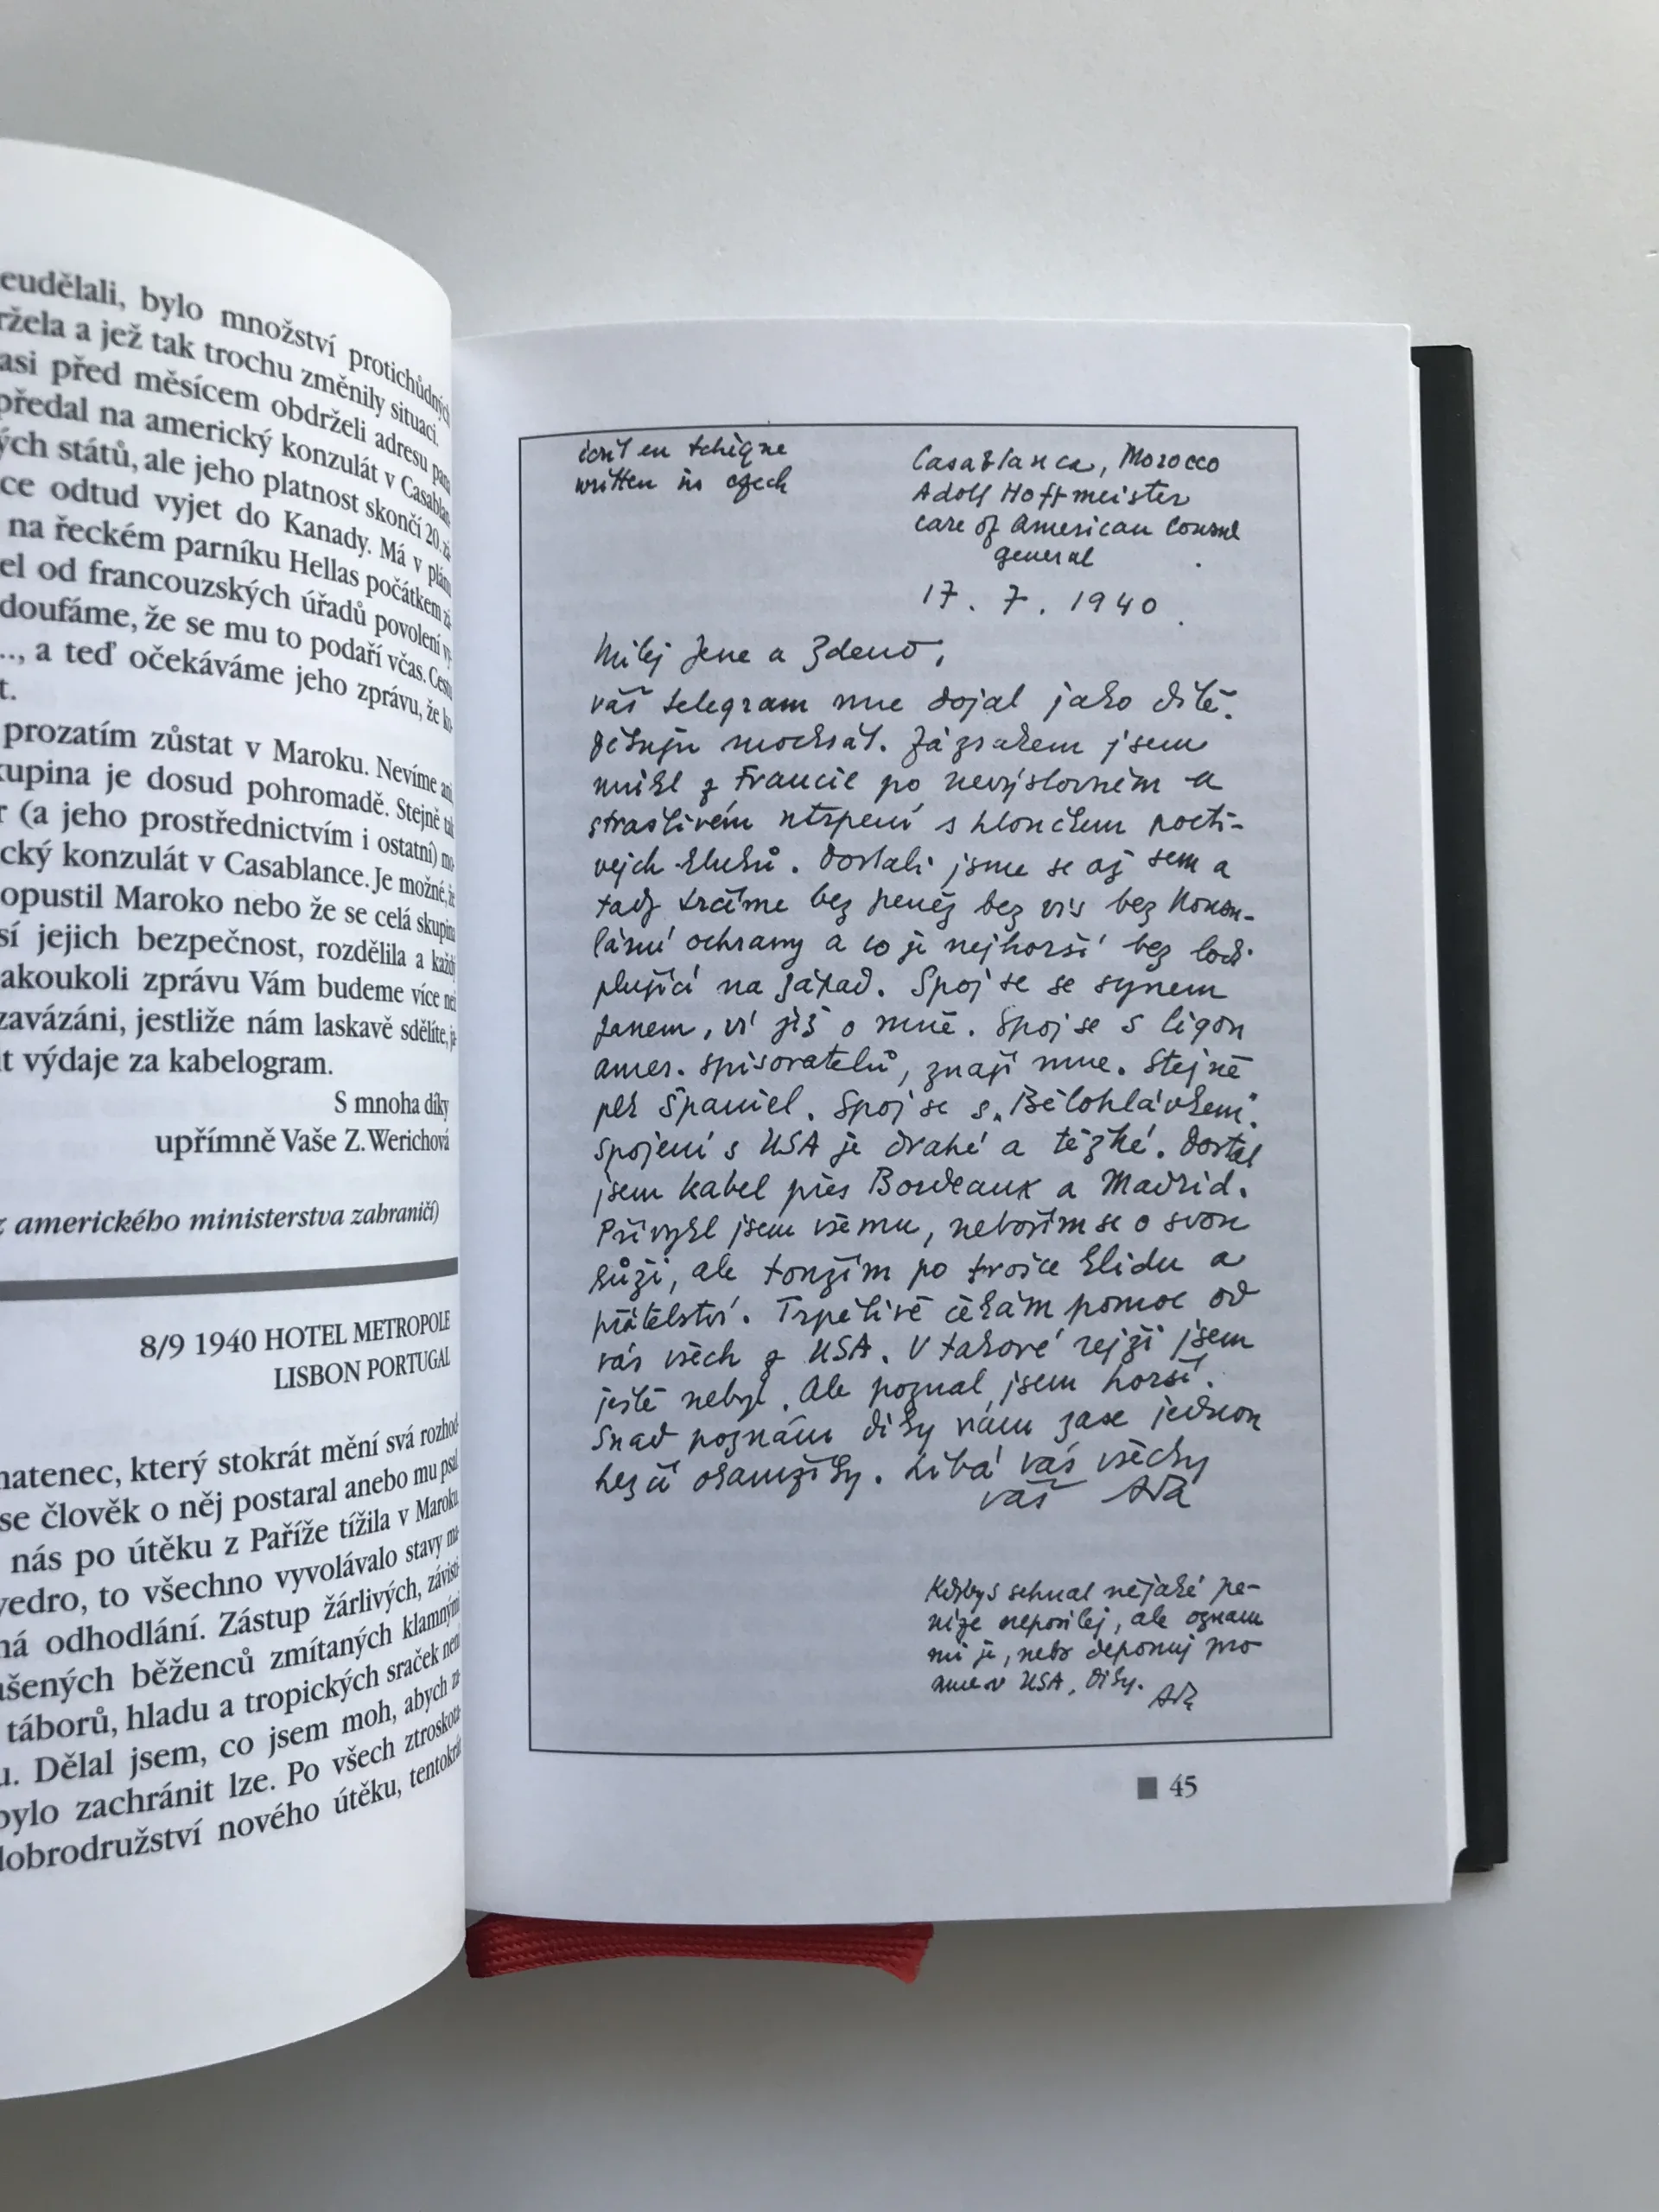 eudělali, bylo množství protichůdných
ržela a jež tak trochu změnily situaci.
asi před měsícem obdrželi adresu pana
předal na americký konzulát v Casablan
ých států, ale jeho platnost skončí 20. zá
ce odtud vyjet do Kanady. Má v plánu
na řeckém parníku Hellas počátkem zá
el od francouzských úřadů povolení vy-
doufáme, že se mu to podaří včas. Cestu
.., a teď očekáváme jeho zprávu, že ko-
t.
prozatím zůstat v Maroku. Nevíme ani
kupina je dosud pohromadě. Stejně tak
r (a jeho prostřednictvím i ostatní) mo-
cký konzulát v Casablance. Je možné, že
opustil Maroko nebo že se celá skupina
sí jejich bezpečnost, rozdělila a každý
akoukoli zprávu Vám budeme více než
zavázáni, jestliže nám laskavě sdělíte, ja-
t výdaje za kabelogram.
S mnoha díky
upřímně Vaše Z. Werichová
z amerického ministerstva zahraničí)
8/9 1940 HOTEL METROPOLE
LISBON PORTUGAL
matenec, který stokrát mění svá rozhod-
se člověk o něj postaral anebo mu psal.
nás po útěku z Paříže tížila v Maroku
vedro, to všechno vyvolávalo stavy ma-
ná odhodlání. Zástup žárlivých, závisti-
ašených běženců zmítaných klamnými
táborů, hladu a tropických sraček není
u. Dělal jsem, co jsem moh, abych za-
bylo zachránit lze. Po všech ztroskota-
dobrodružství nového útěku, tentokrát
écrit en tchèque
written in czech
Casablanca, Morocco
Adolf Hoffmeister
care of American Consul
general
17. 7. 1940
Milej Jene a Zdeno,
váš telegram mne dojal jako dítě.
Děkuju mockrát. Zázrakem jsem
unikl z Francie po nevýslovném a
strašlivém utrpení s hloučkem pocti-
vejch kluků. Dostali jsme se až sem a
tady trčíme bez peněz bez vis bez konsu-
lární ochrany a co je nejhorší bez lodi
plující na západ. Spoj se se synem
Janem, ví již o mně. Spoj se s ligou
amer. spisovatelů, znají mne. Stejně
pek Španiel. Spoj se s „Bělohlávkem".
Spojení s USA je drahé a těžké. Dostal
jsem kabel přes Bordeaux a Madrid.
Přivykl jsem všemu, nebojím se o svou
kůži, ale toužím po trošce klidu a
přátelství. Trpělivě čekám pomoc od
vás všech z USA. V takové rejži jsem
ještě nebyl. Ale poznal jsem horší.
Snad poznám díky vám zase jednou
hezčí okamžiky. Líbá vás všechy
váš Ada
Kdybys sehnal nějaké pe-
níze neposílej, ale oznam
mi je, nebo deponuj pro
mne v USA, díky. Ada
45